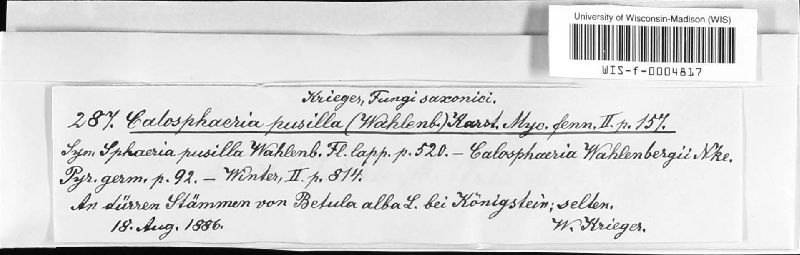 University of Wisconsin-Madison (WIS)
WIS-f-0004817
Krieger, Fungi saxonici.
287. Calosphaeria pusilla (Wahlenb.) Karst. Myc. fenn. II. p. 157.
Sym. Sphaeria pusilla Wahlenb. Fl. lapp. p. 520. – Calosphaeria Wahlenbergii Nke.
Pyr. germ. p. 92. – Winter, II. p. 814.
An dürren Stämmen von Betula alba L. bei Königstein; selten.
18. Aug. 1886. W. Krieger.